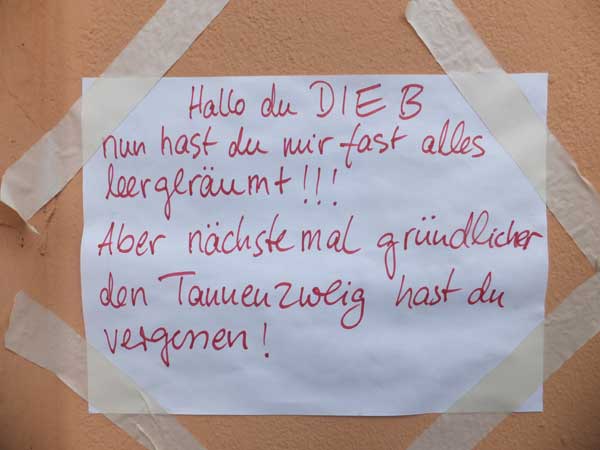 Hallo du DIEB
nun hast du mir fast alles
leergeräumt!!!
Aber nächstemal gründlicher
den Tannenzweig hast du
vergessen!